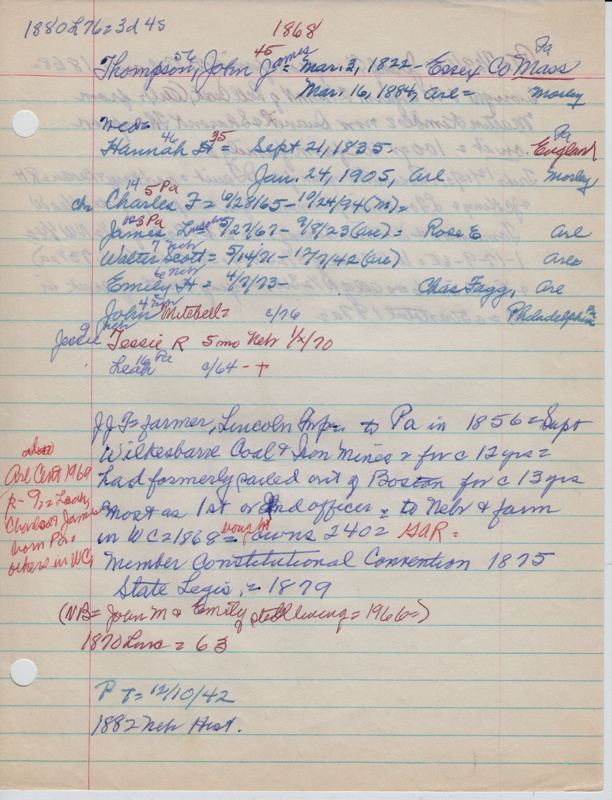 1880 L76=3d 4s
1868
Thompson, John James = Mar. 3, 1822 - Essex Co Mass
56 45 Pa
Mar. 16, 1884, Arl = Morley
wed =
Hannah H = Sept 21, 1835. England
46 35 Pa
Jan. 24, 1905, Arl Morley
ch Charles F = 6/28/65 - 10/24/94 (M) =
14 5 Pa
James Lincoln 5/27/67 - 9/8/23 (Arl) = Rose E Arl
3 Pa
Walter Scott = 5/14/71 - 12/2/42 (Arl) Arl
7 Nebr
Emily H = 4/2/73 - Chas Fagg, Arl
6 Nebr
John Mitchell = c/76 Philadelphia Pa
4 Nebr
Jessie Tessie R 5 mo Nebr 1/x/70
9 Nebr
Leah c/64 - +
16 Pa
JJT = farmer, Lincoln Twp = to Pa in 1856 = Supt
Wilkesbarre Coal & Iron Mines = for c 12 yrs =
had formerly sailed out of Boston for c 13 yrs
most as 1st or 2nd officer = to Nebr & farm
in WC = 1868 = bought owns 240 = GAR =
Member Constitutional Convention 1875
State Legis. = 1879
(NB = John M & Emily still living = 1966 =)
1870 Linc = 63
Arl Cent 1969
R - 9/2 = Leah,
Charles & James
born Pa =
others in WC,
PT = 12/10/42
1882 Nebr Hist.